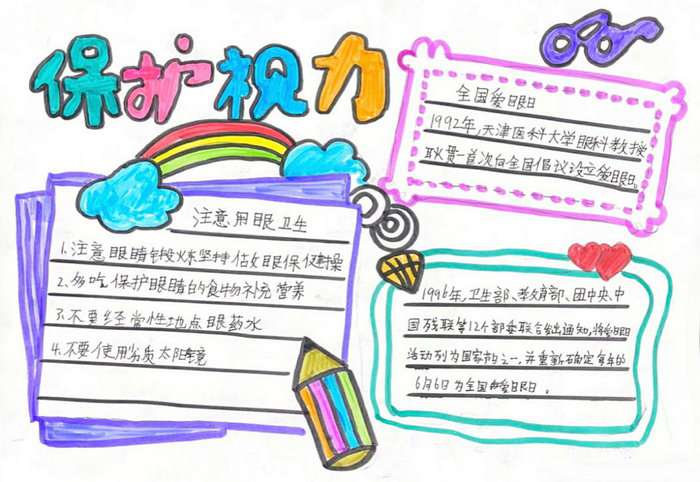 保护视力
全国爱眼日
1992年,天津医科大学眼科教授
耿贯一首次向全国倡议设立爱眼日。
注意用眼卫生
1.注意眼睛锻炼坚持做好眼保健操
2.多吃保护眼睛的食物补充营养
3.不要经常性地点眼药水
4.不要使用劣质太阳镜
1996年,卫生部、教育部、团中央、中
国残联等12个部委联合发出通知,将爱眼日
活动列为国家节日之一,并重新确定每年的
6月6日为全国爱眼日。